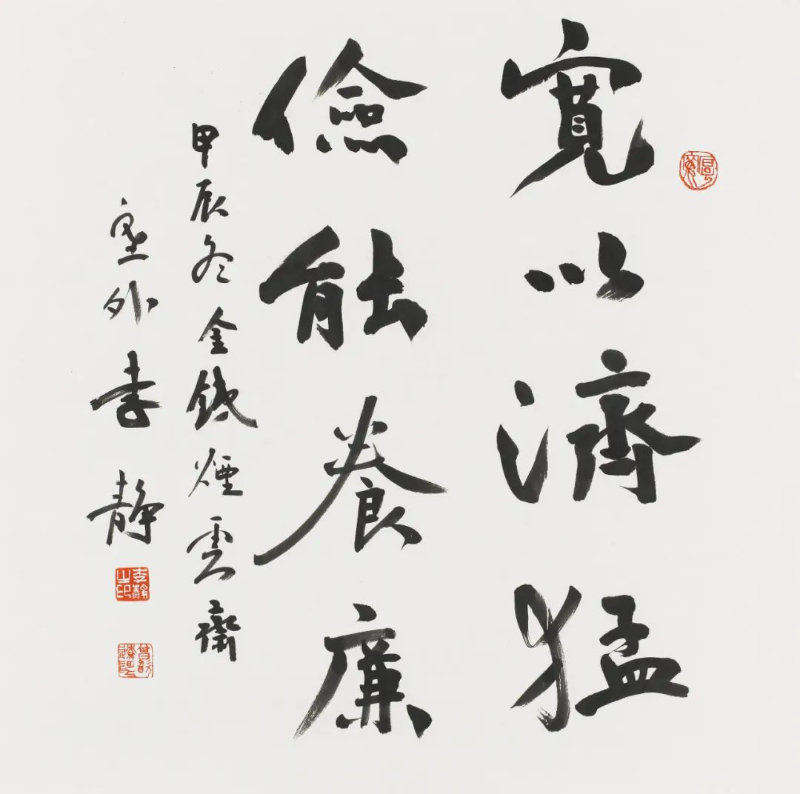 寬以濟猛
儉能養廉
甲辰冬金錢煙雲齋
塞外李靜
李靜之印